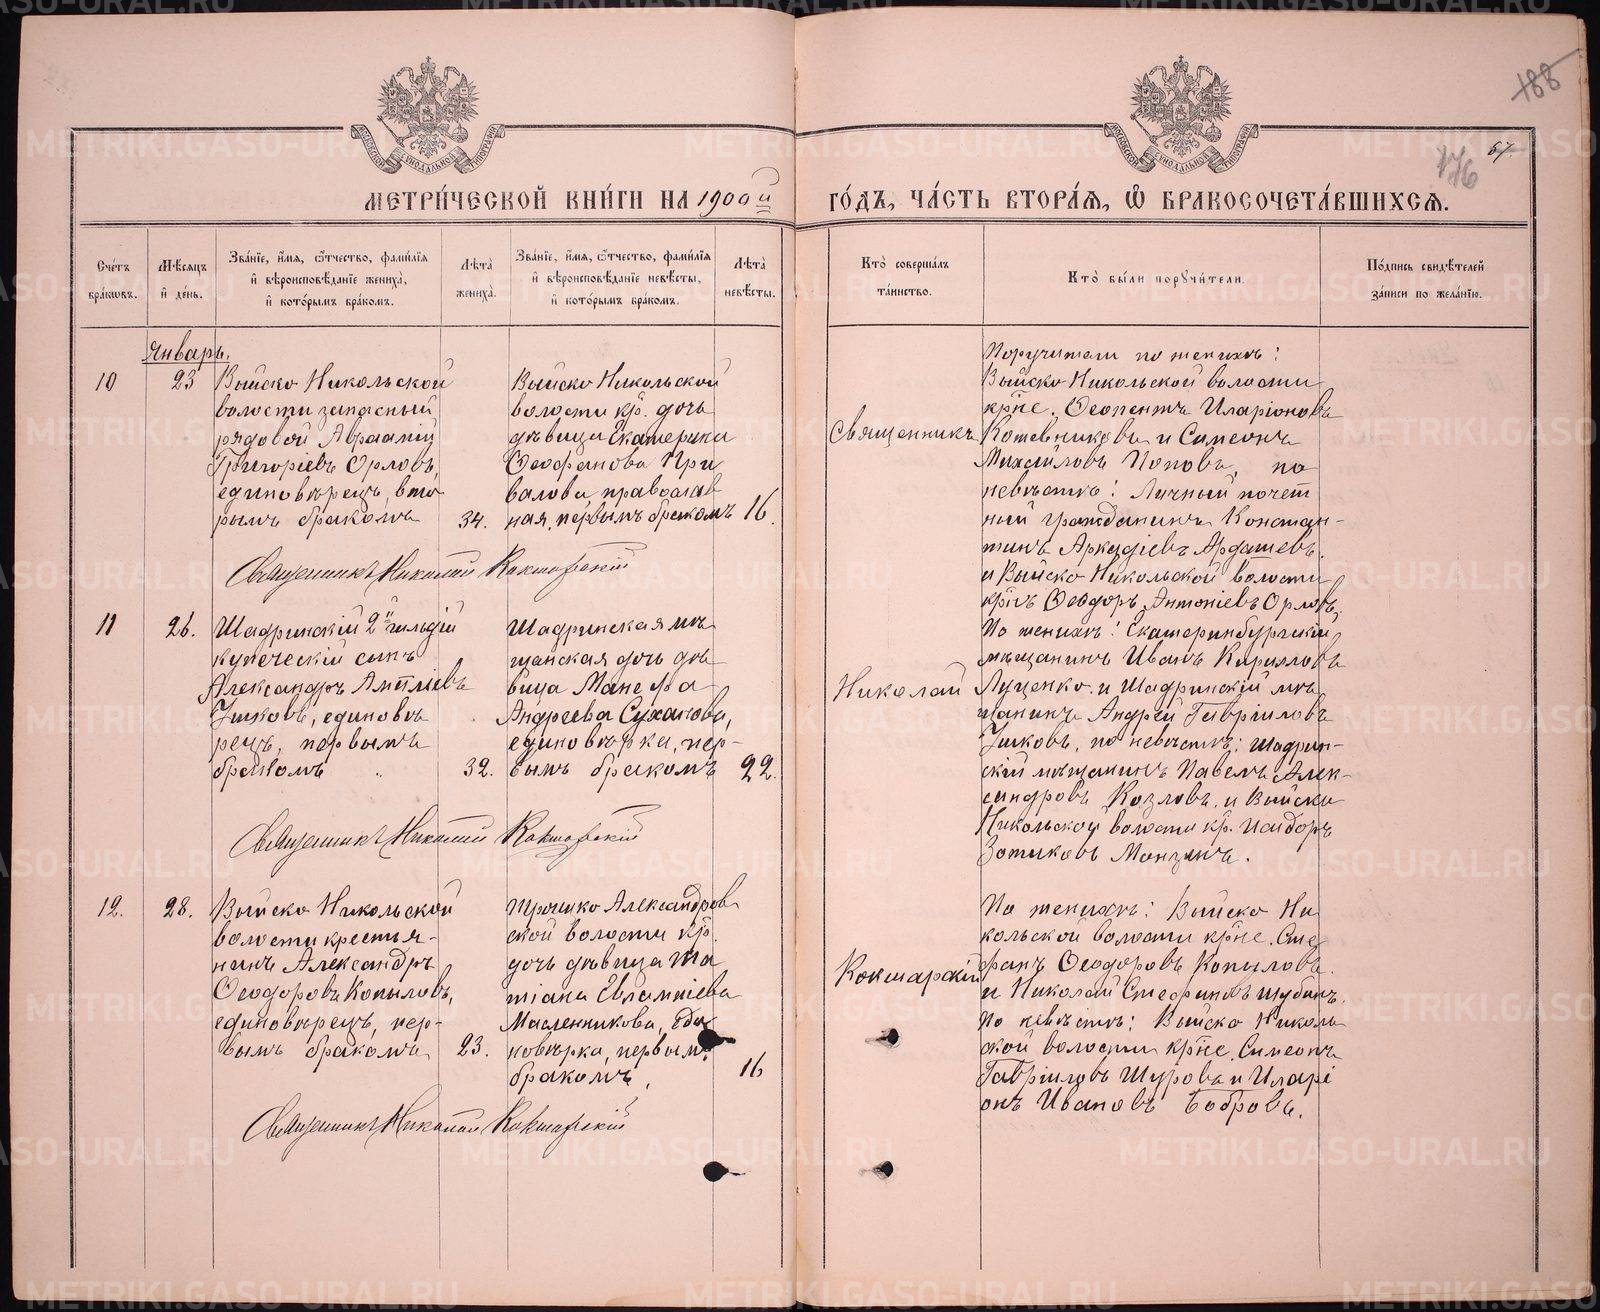 188
176
67.
МЕТРИ́ЧЕСКОЙ КНИ́ГИ НА 1900й
ГО́ДЪ, ЧА́СТЬ ВТОРА́Я, Ѽ БРАКОСОЧЕТА́ВШИХСЯ.
Сче́тъ бра́кѡвъ.
Мѣ́сяцъ и҆ де́нь.
Зва́нїе, и҆́мя, ѻ҆́тчество, фами́лїя и҆ вѣроисповѣ́данїе жениха̀, и҆ кото́рымъ бра́комъ.
Лѣта̀ жениха̀.
Зва́нїе, и҆́мя, ѻ҆́тчество, фами́лїя и҆ вѣроисповѣ́данїе невѣ́сты, и҆ кото́рымъ бра́комъ.
Лѣта̀ невѣ́сты.
Кто̀ соверша́лъ та́инство.
Кто̀ бы́ли порꙋчи́тели.
По́дпись свидѣ́телей за́писи по жела́нїю.
Январь.
10
23
Выйско Никольской
волости запасный
рядовой Авраамій
Григоріевъ Орловъ,
единовѣрецъ, вто
рымъ бракомъ
34.
Выйско Никольской
волости кр. дочь
дѣвица Екатерина
Ѳеофанова При
валова, православ
ная, первымъ бракомъ
16.
Священникъ Николай Кокшарскій
Священникъ
Поручители по женихѣ:
Выйско Никольской волости
кр̃не. Ѳеопентъ Иларіоновъ
Кожевниковъ и Симеонъ
Михайловъ Поповъ, по
невѣстѣ: Личный почет
ный гражданинъ Констан-
тинъ Аркадіевъ Ардашевъ.
и Выйско Никольской волости
кр̃нъ Ѳеодоръ Антоніевъ Орловъ.
11
26.
Шадринскій 2й гильдіи
купеческій сынъ
Александръ Амплiевъ
Ушковъ, единовѣ
рецъ, первымъ
бракомъ
32.
Шадринская мѣ
щанская дочь дѣ
вица Манефа
Андреева Суханова,
единовѣрка, пер-
вымъ бракомъ
22.
Священникъ Николай Кокшарскій
Николай
По женихѣ: Екатеринбургскій
мѣщанинъ Иванъ Кириловъ
Луценко. и Шадринскій мѣ
щанинъ Андрей Гавріиловъ
Ушковъ, по невѣстѣ: Шадрин-
скій мѣщанинъ Павелъ Алек-
сандровъ Козловъ. и Выйско
Никольской волости кр. Исидоръ
Зотиковъ Манзинъ.
12.
28.
Выйско Никольской
волости крестья-
нинъ Александръ
Ѳеодоровъ Копыловъ,
единовѣрецъ, пер-
вымъ бракомъ
23.
Троицко Александров
ской волости кр.
дочь дѣвица Та
тіана Евлампіева
Масленникова, еди
новѣрка, первымъ
бракомъ,
16
Священникъ Николай Кокшарскій
Кокшарскій
По женихѣ: Выйско Ни
кольской волости кр̃не. Сте
фанъ Ѳеодоровъ Копыловъ.
и Николай Стефановъ Шубинъ.
По невѣстѣ: Выйско Николь
ской волости кр̃не. Симеонъ
Гавріиловъ Шуровъ и Иларі
онъ Ивановъ Бобровъ.